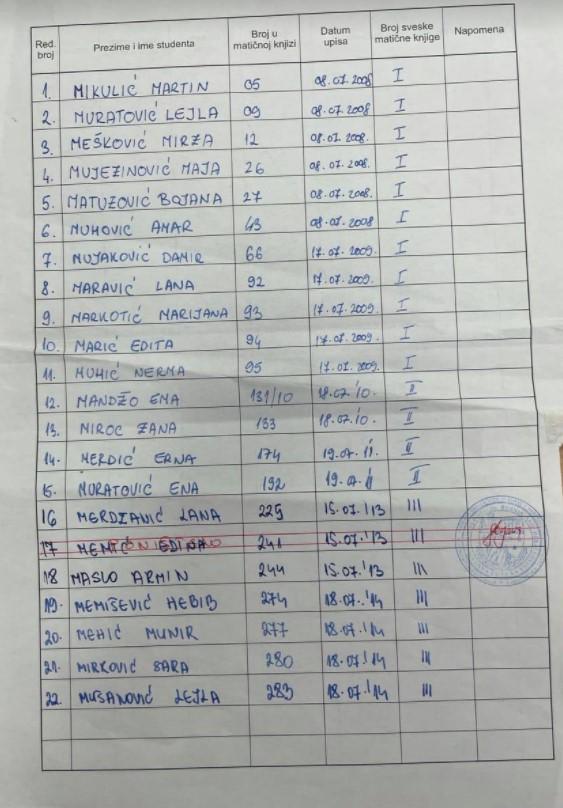 Red. broj Prezime i ime studenta Broj u matičnoj knjizi Datum upisa Broj sveske matične knjige Napomena
1. MIKULIĆ MARTIN 05 08.07.2008 I
2. MURATOVIĆ LEJLA 09 08.07.2008 I
3. MEŠKOVIĆ MIRZA 12 08.07.2008. I
4. MUJEZINOVIĆ MAJA 26 08.07.2008. I
5. MATUZOVIĆ BOJANA 27 08.07.2008. I
6. MUHOVIĆ AMAR 43 08.07.2008 I
7. MUJAKOVIĆ DAMIR 66 17.07.2009. I
8. MARAVIĆ LANA 92 17.07.2009. I
9. MARKOTIĆ MARIJANA 93 17.07.2009. I
10. MARIĆ EDITA 94 17.07.2009. I
11. MUHIĆ NERMA 95 17.07.2009. I
12. MANDŽO EMA 131/10 18.07.'10. II
13. MIROČ ŽANA 133 18.07.'10. II
14. MERDIĆ ERNA 174 19.07.'11. II
15. MURATOVIĆ ENA 192 19.07.'11 II
16 MERDŽANIĆ LANA 225 15.07.'13 III
17 241 15.07.'13 III
18 MASLO ARMIN 244 15.07.'13 III
19. MEMIŠEVIĆ HEBIB 274 18.07.'14 III
20. MEHIĆ MUNIR 277 18.07.'14 III
21. MIRKOVIĆ SARA 280 18.07.'14 III
22. MUSANOVIĆ LEJLA 283 18.07.'14 III